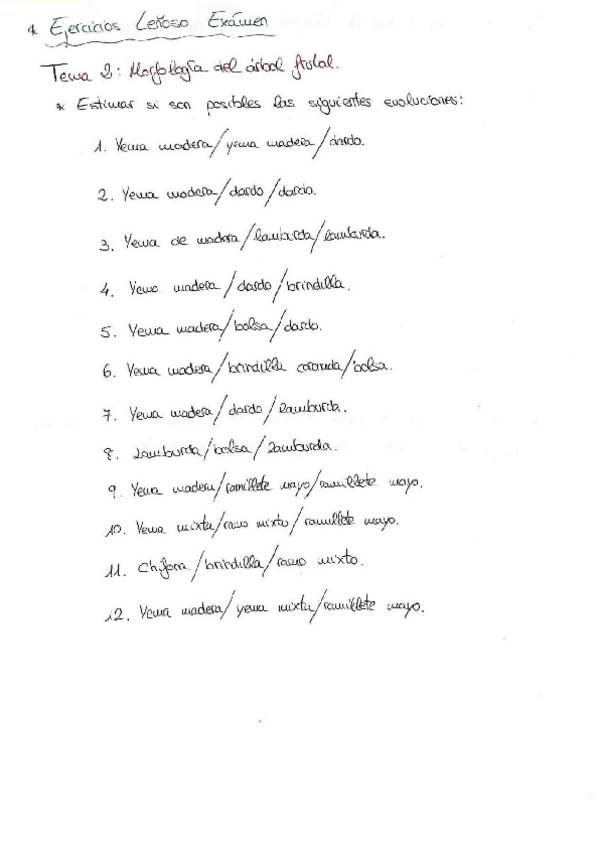 * Ejercicios Leñoso Exámen
Tema 2: Morfología del árbol frutal.
* Estimar si son posibles las siguientes evoluciones:
1. Yema madera/yema madera/dardo.
2. Yema madera/dardo/dardo.
3. Yema de madera/lamburda/lamburda.
4. Yema madera/dardo/brindilla.
5. Yema madera/bolsa/dardo.
6. Yema madera/brindilla coronada/bolsa.
7. Yema madera/dardo/lamburda.
8. Lamburda/bolsa/Lamburda.
9. Yema madera/ramillete mayo/ramillete mayo.
10. Yema mixta/ramo mixto/ramillete mayo.
11. Chifona/brindilla/ramo mixto.
12. Yema madera/yema mixta/ramillete mayo.